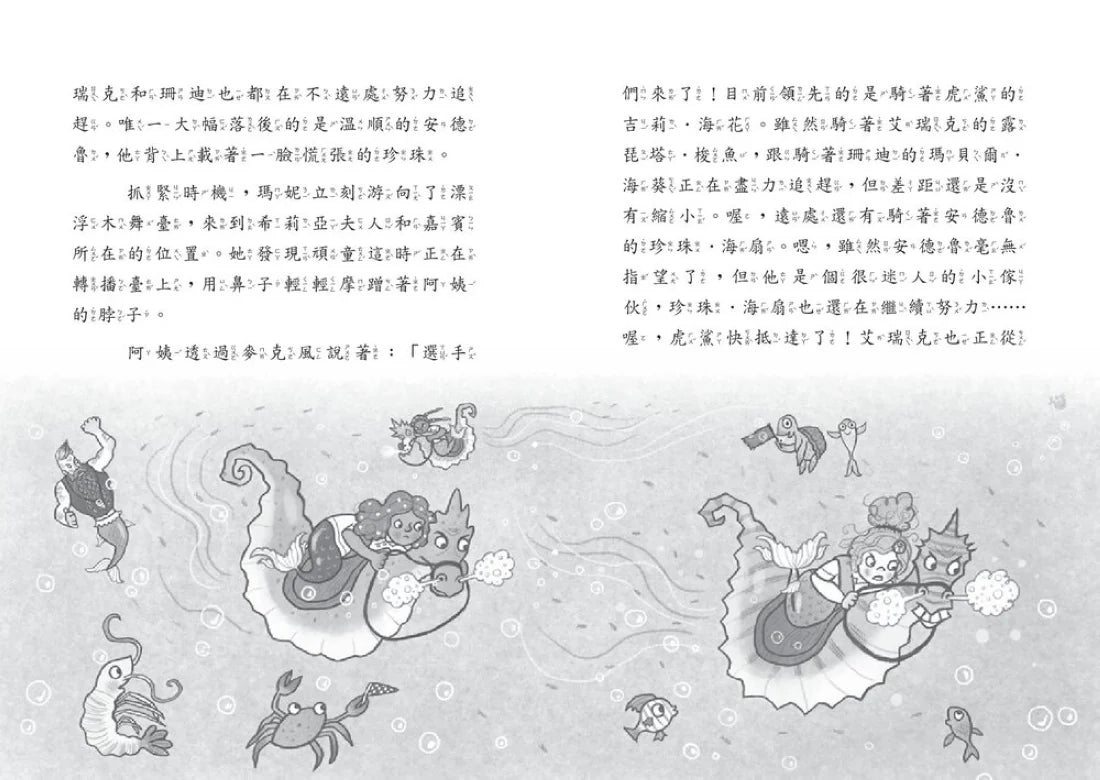 瑞克和珊迪也都在不遠處努力追
趕。唯一大幅落後的是溫順的安德
魯，他背上載著一臉慌張的珍珠。
抓緊時機，瑪妮立刻游向了漂
浮木舞臺，來到希莉亞夫人和嘉賓
所在的位置。她發現頑童這時正在
轉播臺上，用鼻子輕輕摩蹭著阿姨
的脖子。
阿姨透過麥克風說著：「選手
們來了！目前領先的是騎著虎鯊的
吉莉·海花。雖然騎著艾瑞克的露
琵塔·梭魚，跟騎著珊迪的瑪貝爾·
海葵正在盡力追趕，但差距還是沒
有縮小。喔，遠處還有騎著安德魯
的珍珠·海扇。嗯，雖然安德魯毫無
指望了，但他是個很迷人的小傢
伙，珍珠·海扇也還在繼續努力……
喔，虎鯊快抵達了！艾瑞克也正從